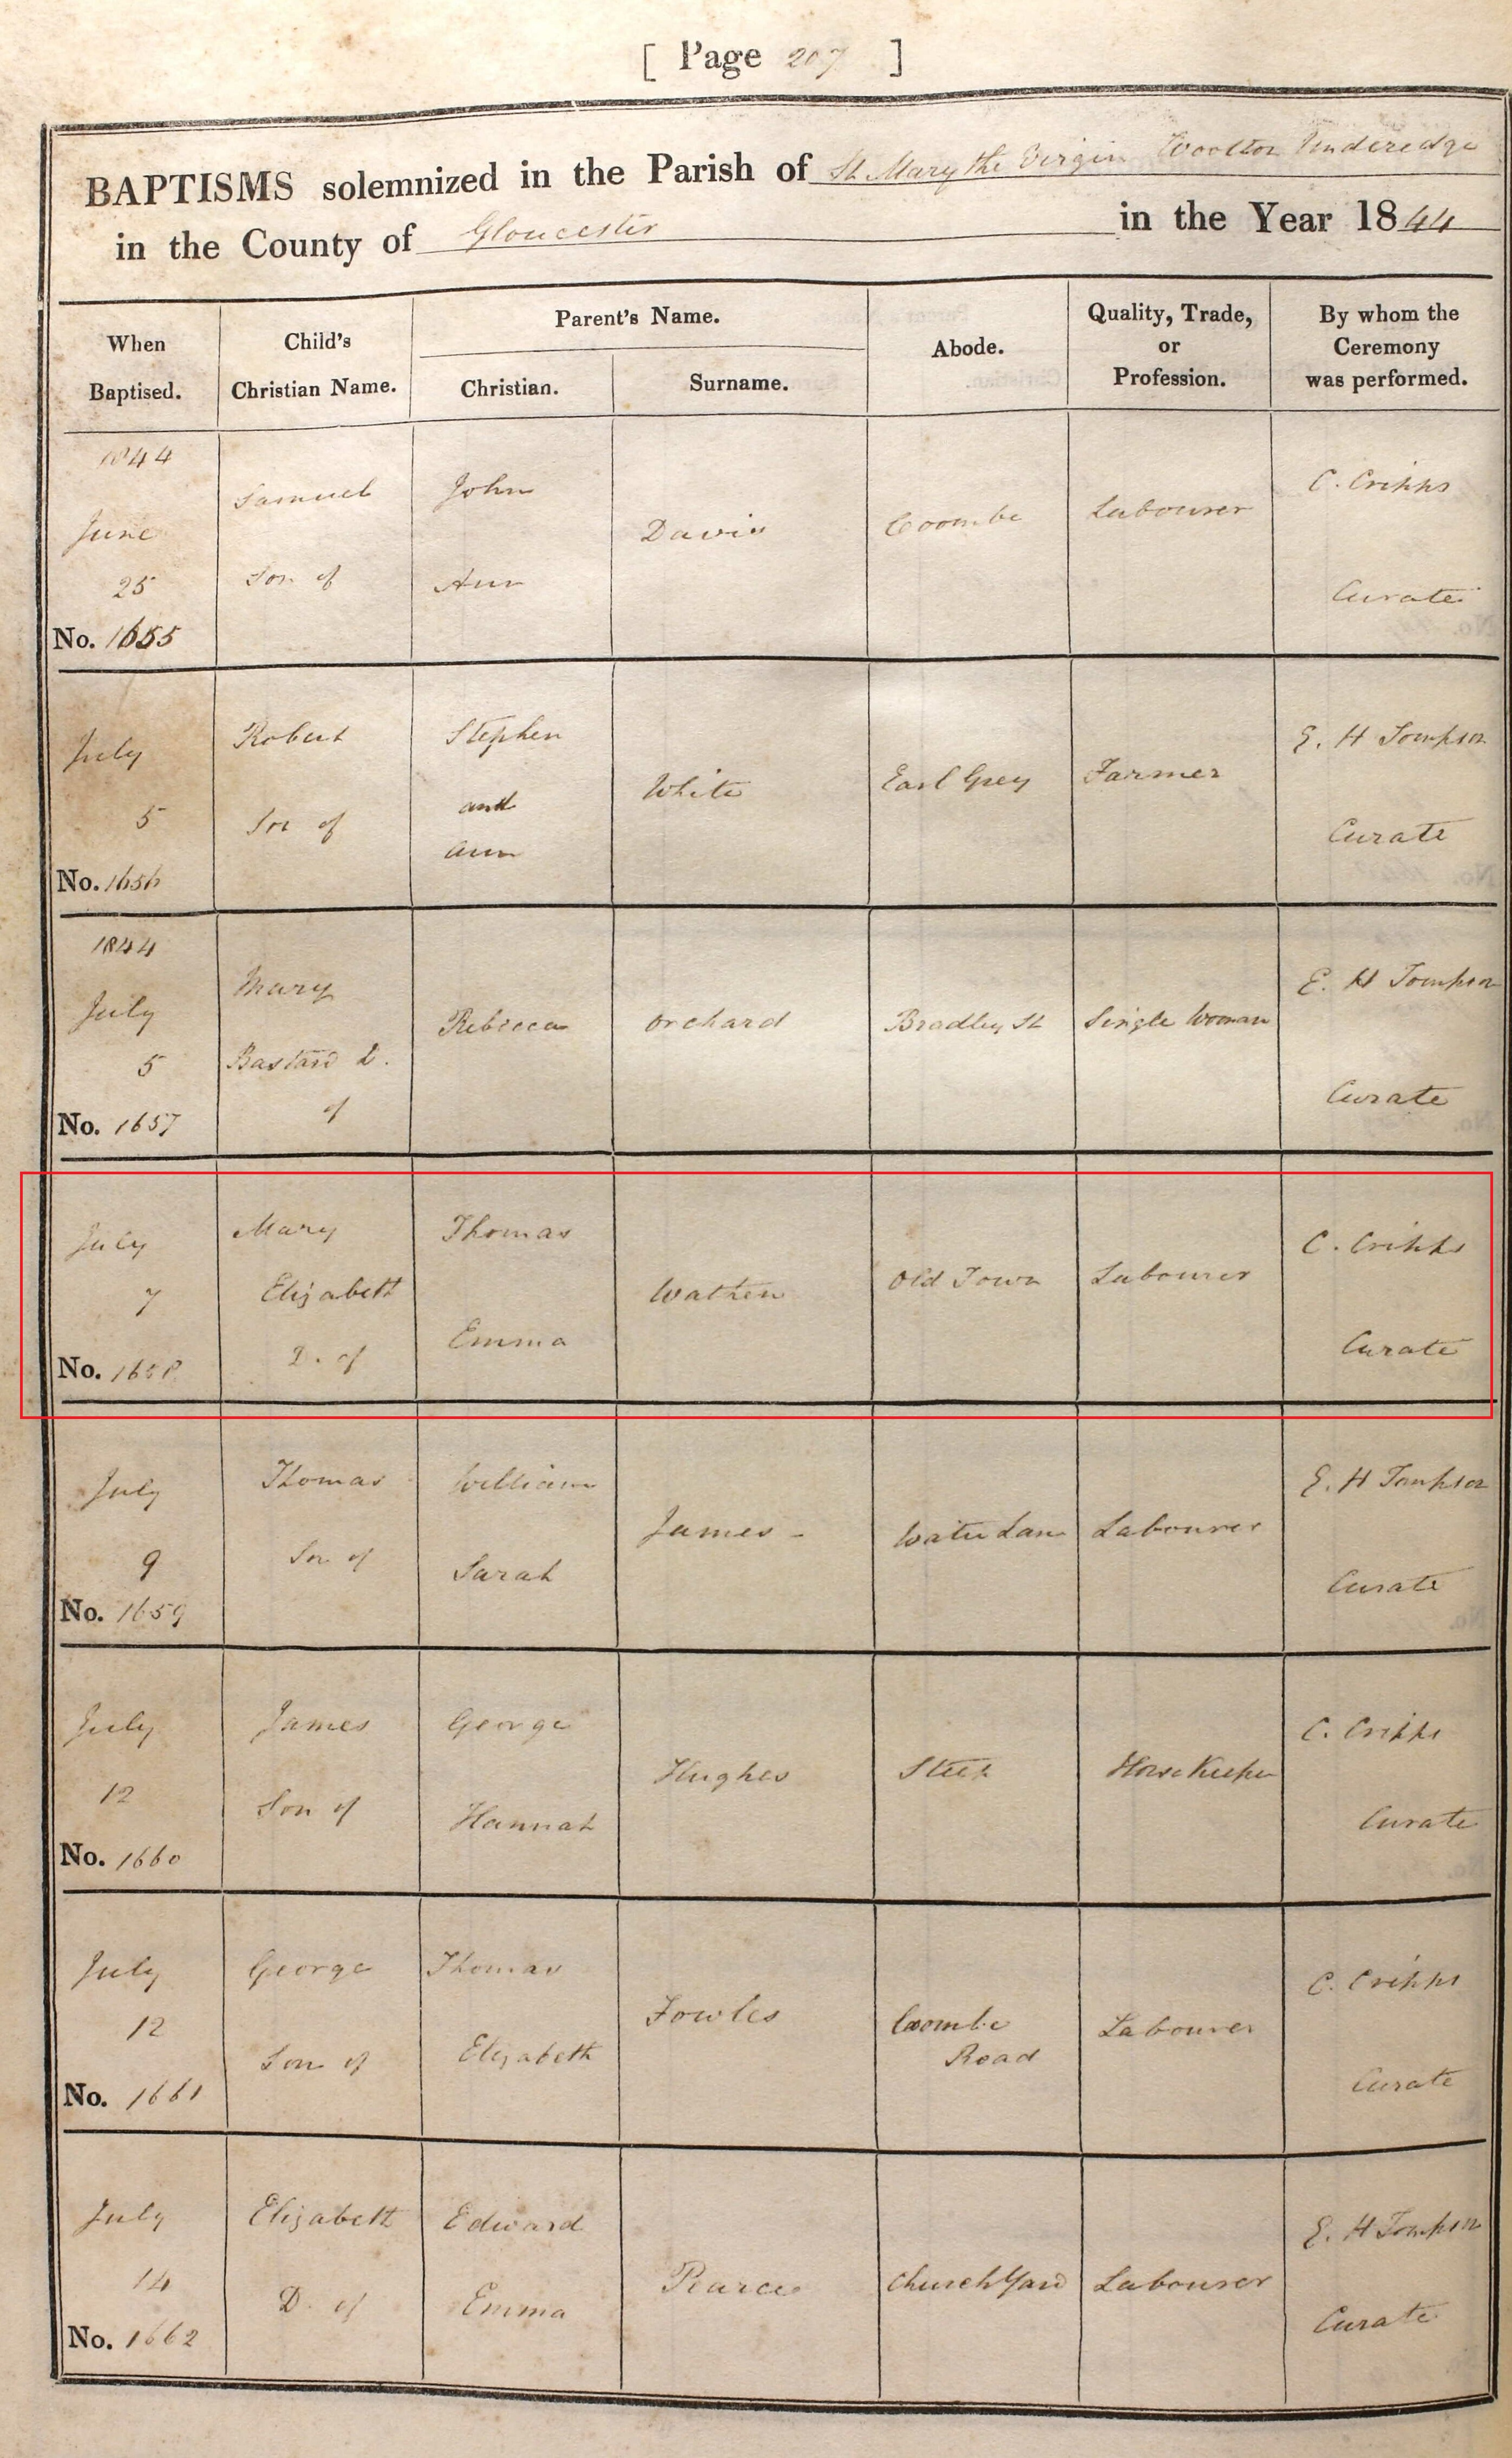 [ Page 207 ]
BAPTISMS solemnized in the Parish of St Mary the Virgin Wootton Underedge
in the County of Gloucester in the Year 1844
When Baptised.
Child's Christian Name.
Parent's Name.
Christian.
Surname.
Abode.
Quality, Trade, or Profession.
By whom the Ceremony was performed.
1844
June
25
No. 1655
Samuel
Son of
John
Ann
Davis
Coombe
Labourer
C. Cripps
Curate
July
5
No. 1656
Robert
Son of
Stephen
and
Ann
White
Earl Grey
Farmer
E. H Tompson
Curate
1844
July
5
No. 1657
Mary
Bastard D.
of
Rebecca
Orchard
Bradley St
Single Woman
E. H Tompson
Curate
July
7
No. 1658
Mary
Elizabeth
D. of
Thomas
Emma
Wathen
Old Town
Labourer
C. Cripps
Curate
July
9
No. 1659
Thomas
Son of
William
Sarah
James -
Water Lane
Labourer
E. H Tompson
Curate
July
12
No. 1660
James
Son of
George
Hannah
Hughes
Steep
Horse Keeper
C. Cripps
Curate
July
12
No. 1661
George
Son of
Thomas
Elizabeth
Fowles
Coombe
Road
Labourer
C. Cripps
Curate
July
14
No. 1662
Elizabeth
D. of
Edward
Emma
Pearce
Church Yard
Labourer
E. H Tompson
Curate